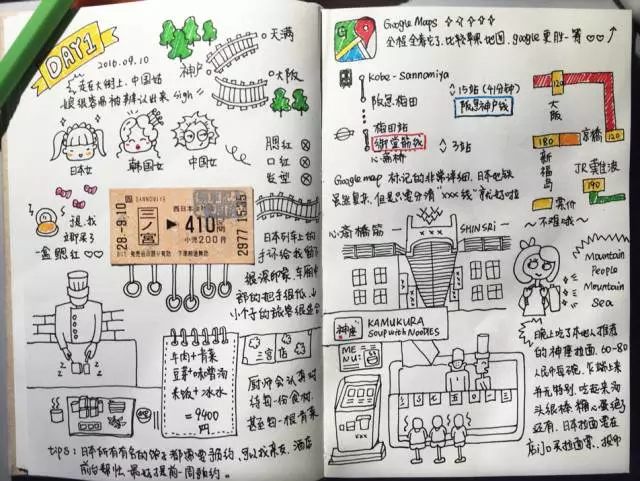 DAY1
2010.09.10
走在大街上,中国姑
娘很容易被辨认出来 sigh
神户
天满
大阪
日本女
韩国女
中国女
腮红 ×
口红 ×
发型 ×
一盒腮红
SANNOMIYA
28.-9.10
三ノ宮
西日本
▶ 410円
小児200円
2877
日本列车上的
很深印象,车厢中
部的把手很低,小
小个子的旅客很适合
牛肉+青菜
豆芽+味噌汤
米饭+冰水
=9400
円
三宫店
厨师会认真对
待每一份食材,
甚至每一根青菜
tips:日本所有有名的馆子都需要预约,可以找亲友、酒店
前台帮忙,最好提前一周预约。
Google Maps
全程全靠它了,比较苹果地图,google更胜一筹
Kobe-Sannomiya
15站(41分钟)
阪急梅田
阪急神户线
梅田站
御堂筋线
3站
心斋桥
120
大阪
180
京橋
120
新福岛
JR难波
190
票价
~不难哦~
Google map 标记的非常详细,日本地铁
虽然复杂,但是只要分清"xxx线"就好啦
心斎橋筋
SHINSAI
Mountain
People
Mountain
Sea
神座
KAMUKURA
Soup with Noodles
MENU:
晚上吃了本地人推荐
的神座拉面,60-80
人民币每碗,
并无特别,吃起来汤
头很棒,糖心蛋绝了
还有,日本拉面需在
店门口买拉面票,